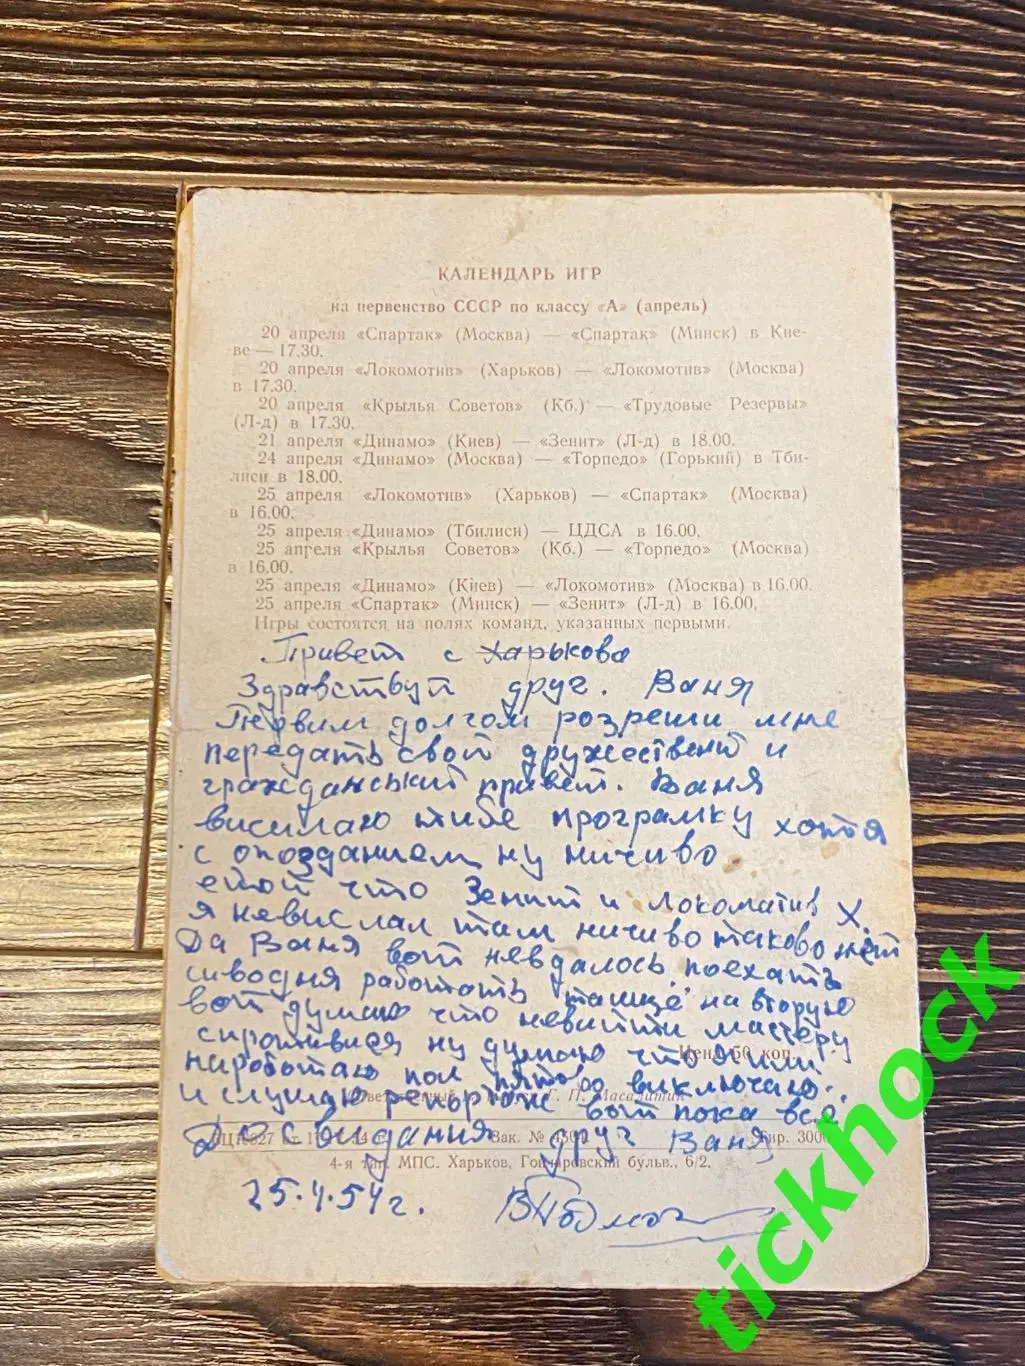 КАЛЕНДАРЬ ИГР
на первенство СССР по классу «А» (апрель)
20 апреля «Спартак» (Москва) — «Спартак» (Минск) в Кие-
ве — 17.30.
20 апреля «Локомотив» (Харьков) — «Локомотив» (Москва)
в 17.30.
20 апреля «Крылья Советов» (Кб.) — «Трудовые Резервы»
(Л-д) в 17.30.
21 апреля «Динамо» (Киев) — «Зенит» (Л-д) в 18.00.
24 апреля «Динамо» (Москва) — «Торпедо» (Горький) в Тби-
лиси в 18.00.
25 апреля «Локомотив» (Харьков) — «Спартак» (Москва)
в 16.00.
25 апреля «Динамо» (Тбилиси) — ЦДСА в 16.00.
25 апреля «Крылья Советов» (Кб.) — «Торпедо» (Москва)
в 16.00.
25 апреля «Динамо» (Киев) — «Локомотив» (Москва) в 16.00.
25 апреля «Спартак» (Минск) — «Зенит» (Л-д) в 16.00.
Игры состоятся на полях команд, указанных первыми.
Привет с Харькова
Здравствуй друг. Ваня
Первим долгом розреши мне
передать свой дружествений и
гражданський привет. Ваня
висилаю тибе програмку хотя
с опозданием ну ничиво
етой что Зенит и Локоматив Х.
я невислал там ничиво таково нет
Да Ваня вот невдалось поехать
сиводня работать на вторую
вот думаю что невийти мастеру
ну думаю что
пол и виключаю.
Цена 50 коп.
и слушаю репортаж вот пока все
Ответственный Г. П. Масалитин
Досвидания друг Ваня
Зак. № Тир. 3000
4-я тип. МПС. Харьков, Гончаровский бульв., 6/2.
25.4.54г.
tickhock